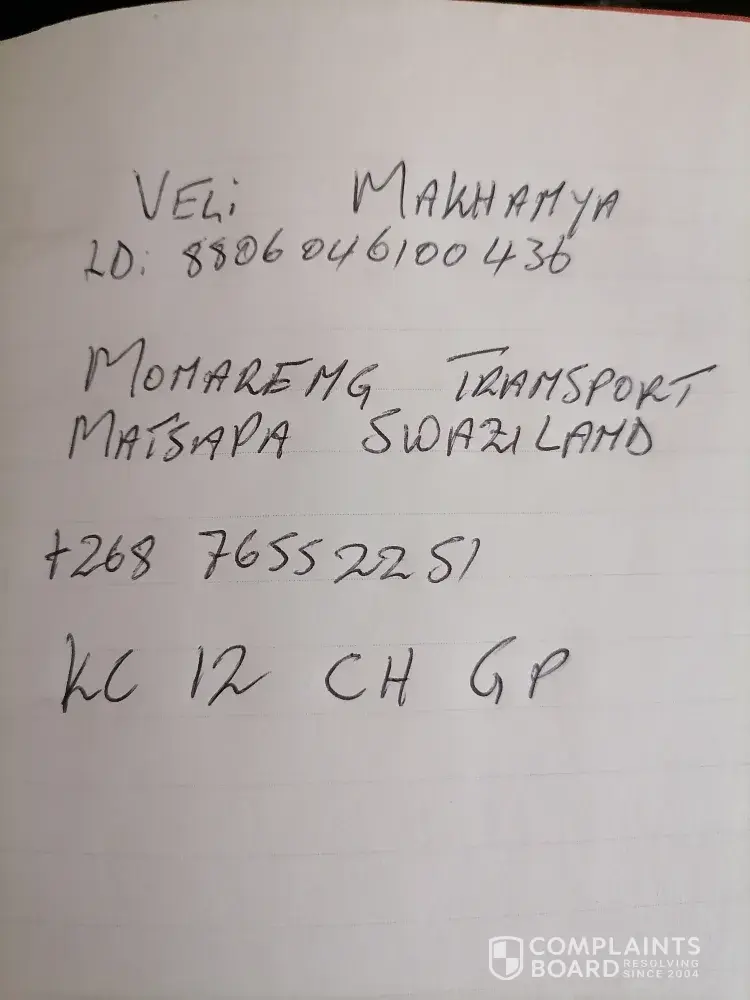 VELi MAKHANYA
ID: 8806046100436
MONARENG TRANSPORT
MATSAPA SWAZILAND
+268 76552251
KC 12 CH GP
COMPLAINTS
BOARD RESOLVING
SINCE 2004